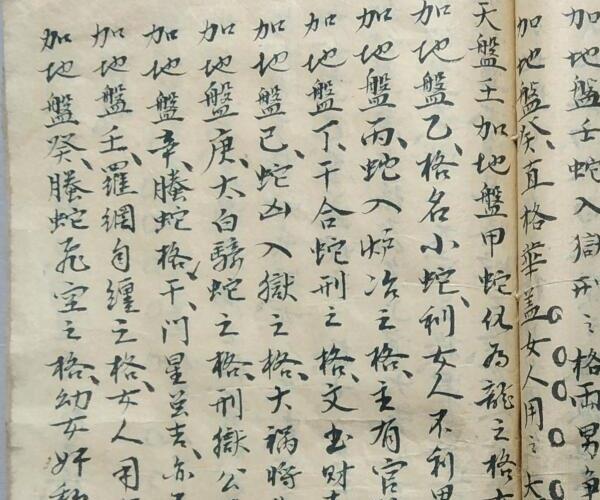 加地盤壬蛇入獄刑之格兩男争
加地盤癸、直格華盖女人用之大
天盤壬加地盤甲蛇化為龍之格
加地盤乙、格名小蛇、利女人不利男
加地盤丙、蛇入炉冶之格、主有官
加地盤丁、干合蛇刑之格、文書財
加地盤己、蛇凶入獄之格、大禍時
加地盤庚、太白騎蛇之格、刑獄公
加地盤辛、騰蛇格干、门星並吉、亦
加地盤壬、羅網自纏之格、女人用
加地盤癸、騰蛇飛空之格、幼女奸